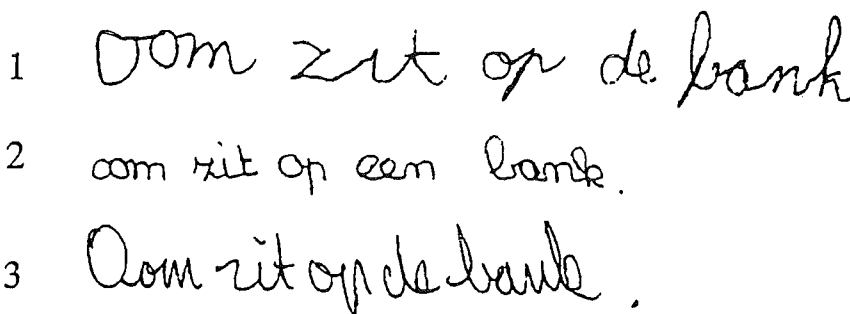 1 Oom zit op de bank
2 oom zit op een bank.
3 Oom zit op de bank.